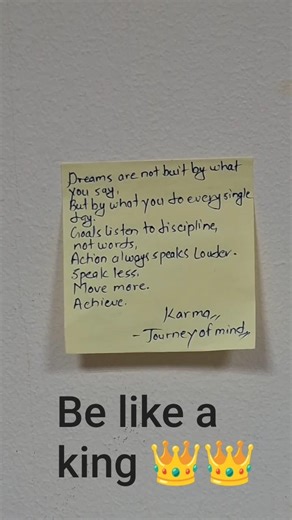 Dreams are not built by what
you say,
But by what you do every single
day.
Goals listen to discipline,
not words,
Action always speaks Louder.
Speak less.
Move more.
Achieve.
Karma,,
- Journey of mind,,
Be like a
king 👑👑